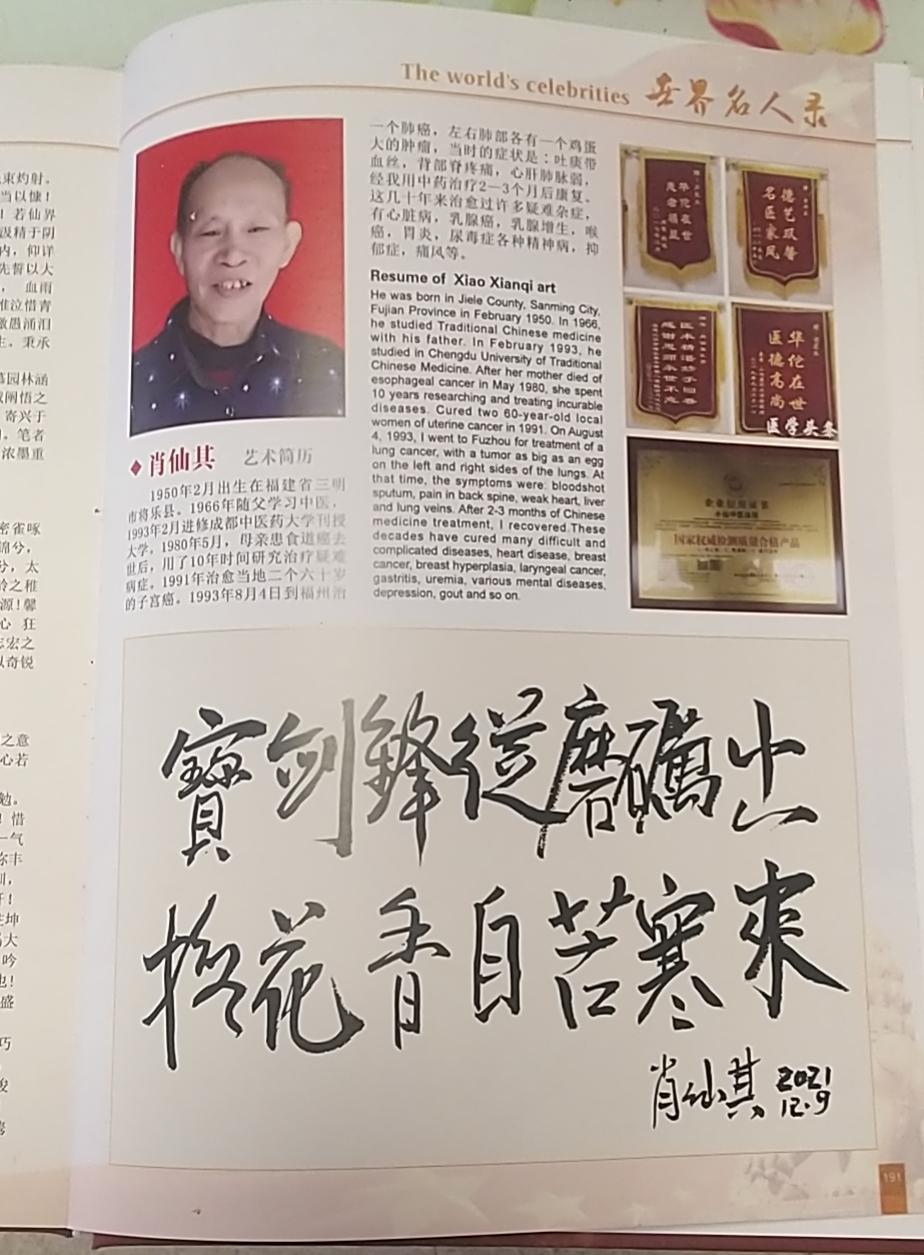 The world's celebrities 世界名人录
束灼射。
当以慷！
！若仙界
及精于阴
内，仰详
先誓以大
，血雨
惟泣惜青
生。秉承
墓园林涵
寄兴于
。笔者
浓墨重
密雀啄
锦兮，
兮，太
龄之稚
源！馨
心 狂
志宏之
以奇锐
之意
心若
勉。
！惜
一气
弥丰
圳，
坤
大
吟
也！
盛
巧
骏
肖仙其 艺术简历
1950年2月出生在福建省三明
市将乐县。1966年随父学习中医，
1993年2月进修成都中医药大学刊授
大学。1980年5月，母亲患食道癌去
世后，用了10年时间研究治疗疑难
病症。1991年治愈当地二个六十岁
的子宫癌。1993年8月4日到福州治
一个肺癌，左右肺部各有一个鸡蛋
大的肿瘤，当时的症状是：吐痰带
血丝，背部脊疼痛，心肝肺脉弱，
经我用中药治疗2—3个月后康复。
这几十年来治愈过许多疑难杂症，
有心脏病，乳腺癌，乳腺增生，喉
癌，胃炎，尿毒症各种精神病，抑
郁症，痛风等。
Resume of Xiao Xianqi art
He was born in Jiele County, Sanming City,
Fujian Province in February 1950. In 1966,
he studied Traditional Chinese medicine
with his father. In February 1993, he
studied in Chengdu University of Traditional
Chinese Medicine. After her mother died of
esophageal cancer in May 1980, she spent
10 years researching and treating incurable
diseases. Cured two 60-year-old local
women of uterine cancer in 1991. On August
4, 1993, I went to Fuzhou for treatment of a
lung cancer, with a tumor as big as an egg
on the left and right sides of the lungs. At
that time, the symptoms were: bloodshot
sputum, pain in back spine, weak heart, liver
and lung veins. After 2-3 months of Chinese
medicine treatment, I recovered.These
decades have cured many difficult and
complicated diseases, heart disease, breast
cancer, breast hyperplasia, laryngeal cancer,
gastritis, uremia, various mental diseases,
depression, gout and so on.
华佗在世
德艺双馨
名医家风
医术精湛妙手回春
感谢恩师永世不忘
华佗在世
医德高尚
医学头条
企业信用证书
国家权威检测质量合格产品
寶剑鋒從磨礪出
梅花香自苦寒來
肖仙其 2021
12.9
191